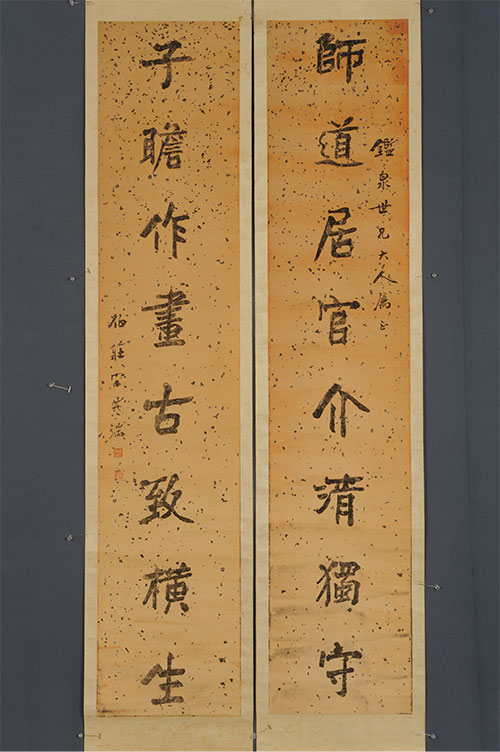 鑑泉世兄大人屬正
師道居官介清獨守
子瞻作畫古致橫生